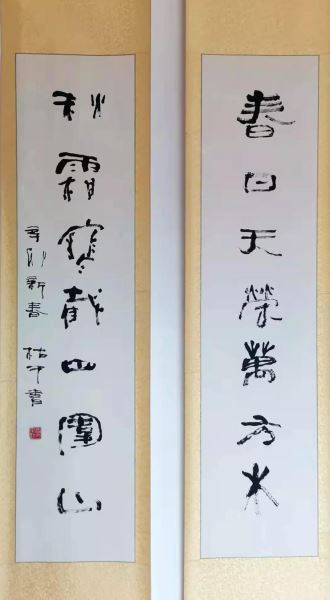 春日天榮萬方木
秋霜截四圍山
辛卯新春 書